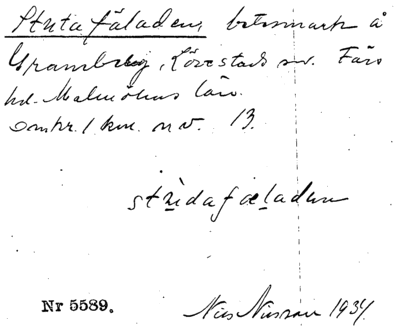 Stutafäladen, betesmark å
Gramberg, Lövestads sn. Färs
hd. Malmöhus län.
omkr. 1 km. n v. 13.
Nr 5589.
Nils Nilsson 1934.